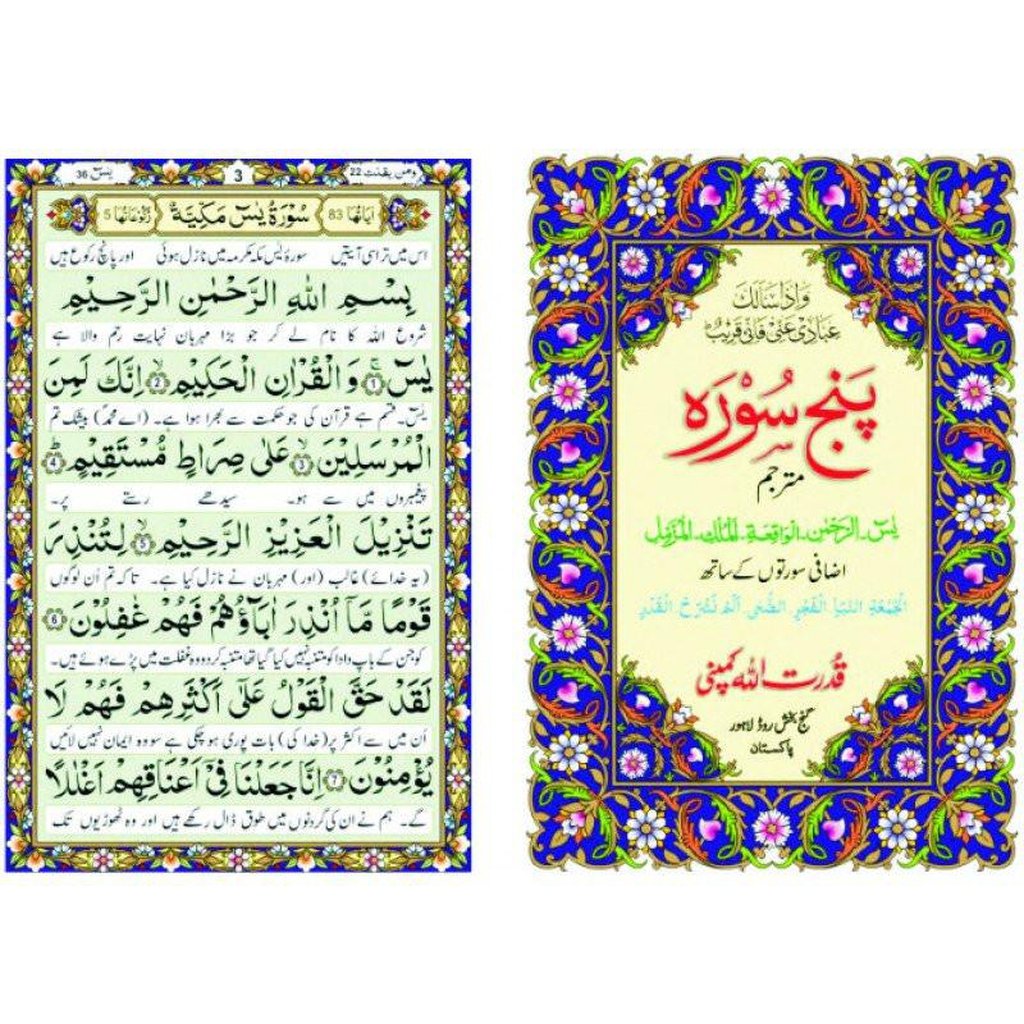 وَاِذَا سَاَلَكَ
عِبَادِیْ عَنِّیْ فَاِنِّیْ قَرِیْبٌ ؕ
پَنج سُوْرَہ
مترجم
یٰسٓ۔الرَّحمٰن۔الوَاقِعَة۔المُلک۔المُزّمِل
اضافی سورتوں کے ساتھ
الْجُمُعَةِ النَّبَاِ الْفَجْرِ الضُّحٰی اَلَمْ نَشْرَحْ الْقَدْرِ
قُدرت اللہ کمپنی
گنج بخش روڈ لاہور
پاکستان
ومن یقنت 22 3 یٰسٓ 36
اٰیَاتُهَا 83 سُوْرَةُ يٰسٓ مَكِّيَّةٌ رُكُوْعَاتُهَا 5
اس میں تراسی آیتیں سورۂ یٰس مکہ مکرمہ میں نازل ہوئی اور پانچ رکوع ہیں
بِسْمِ اللهِ الرَّحْمٰنِ الرَّحِيْمِ
شروع اللہ کا نام لے کر جو بڑا مہربان نہایت رحم والا ہے
يٰسٓ ۚ 1 وَالْقُرْاٰنِ الْحَكِيْمِ ۙ 2 اِنَّكَ لَمِنَ
یٰس۔ قسم ہے قرآن کی جو حکمت سے بھرا ہوا ہے۔ (اے محمدؐ) بیشک تم
الْمُرْسَلِيْنَ ۙ 3 عَلٰى صِرَاطٍ مُّسْتَقِيْمٍ ؕ 4
پیغمبروں میں سے ہو۔ سیدھے رستے پر۔
تَنْزِيْلَ الْعَزِيْزِ الرَّحِيْمِ ۙ 5 لِتُنْذِرَ
(یہ خدائے) غالب (اور) مہربان نے نازل کیا ہے۔ تاکہ تم ان لوگوں
قَوْمًا مَّاۤ اُنْذِرَ اٰبَآؤُهُمْ فَهُمْ غٰفِلُوْنَ 6
کو جن کے باپ دادا کو متنبہ نہیں کیا گیا تھا متنبہ کردو وہ غفلت میں پڑے ہوئے ہیں۔
لَقَدْ حَقَّ الْقَوْلُ عَلٰۤى اَكْثَرِهِمْ فَهُمْ لَا
اُن میں سے اکثر پر (خدا کی) بات پوری ہو چکی ہے سو وہ ایمان نہیں لائیں
يُؤْمِنُوْنَ 7 اِنَّا جَعَلْنَا فِيْۤ اَعْنَاقِهِمْ اَغْلٰلًا
گے۔ ہم نے ان کی گردنوں میں طوق ڈال رکھے ہیں اور وہ ٹھوڑیوں تک